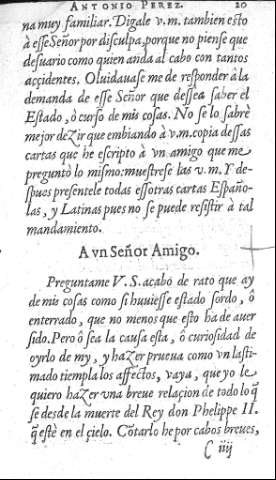 ANTONIO PEREZ. 20
na muy familiar. Digale v.m. tambien esto
à esse Señor por disculpa, porque no piense que
desuario como quien anda al cabo con tantos
acçidentes. Oluidauase me de responder à la
demanda de esse Señor que dessea saber el
Estado, ô curso de mis cosas. No se lo sabrè
mejor dezir que embiando à v.m. copia dessas
cartas que he escripto à vn amigo que me
preguntò lo mismo: muestrese las v.m. Y de-
spues presentele todas essotras cartas Españo-
las, y Latinas pues no se puede resistir à tal
mandamiento.
A vn Señor Amigo.
Preguntame V.S. acabo de rato que ay
de mis cosas como si huuiesse estado sordo, ô
enterrado, que no menos que esto ha de auer
sido. Pero ô sea la causa esta, ô curiosidad de
oyrlo de my, y hazer prueua como vn lasti-
mado tiempla los affectos, vaya, que yo le
quiero hazer vna breue relaçion de todo lo q̃
se desde la muerte del Rey don Phelippe II.
q̃ estè en el çielo. Cõtarlo he por cabos breues,
C iiij